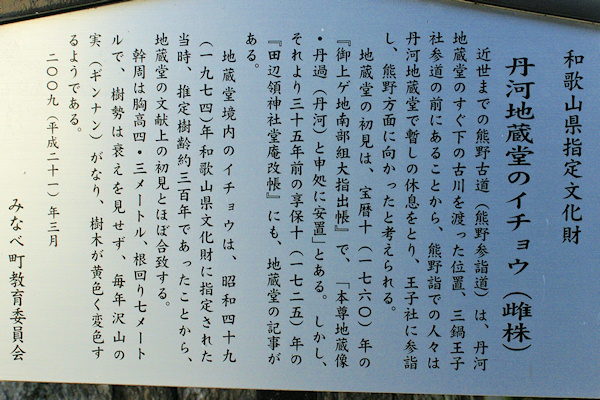 和歌山県指定文化財
丹河地蔵堂のイチョウ(雌株)
近世までの熊野古道(熊野参詣道)は、丹河
地蔵堂のすぐ下の古川を渡った位置、三鍋王子
社参道の前にあることから、熊野詣での人々は
丹河地蔵堂で暫しの休息をとり、王子社に参詣
し、熊野方面に向かったと考えられる。
地蔵堂の初見は、宝暦十(一七六〇)年の
『御上ゲ地南部組大指出帳』で、「本尊地蔵像
・丹過(丹河)と申処に安置」とある。しかし、
それより三十五年前の享保十(一七二五)年の
『田辺領神社堂庵改帳』にも、地蔵堂の記事が
ある。
地蔵堂境内のイチョウは、昭和四十九
(一九七四)年和歌山県文化財に指定された
当時、推定樹齢約三百年であったことから、
地蔵堂の文献上の初見とほぼ合致する。
幹周は胸高四・三メートル、根回り七メート
ルで、樹勢は衰えを見せず、毎年沢山の
実(ギンナン)がなり、樹木が黄色く変色す
るようである。
二〇〇九(平成二十一)年三月
みなべ町教育委員会